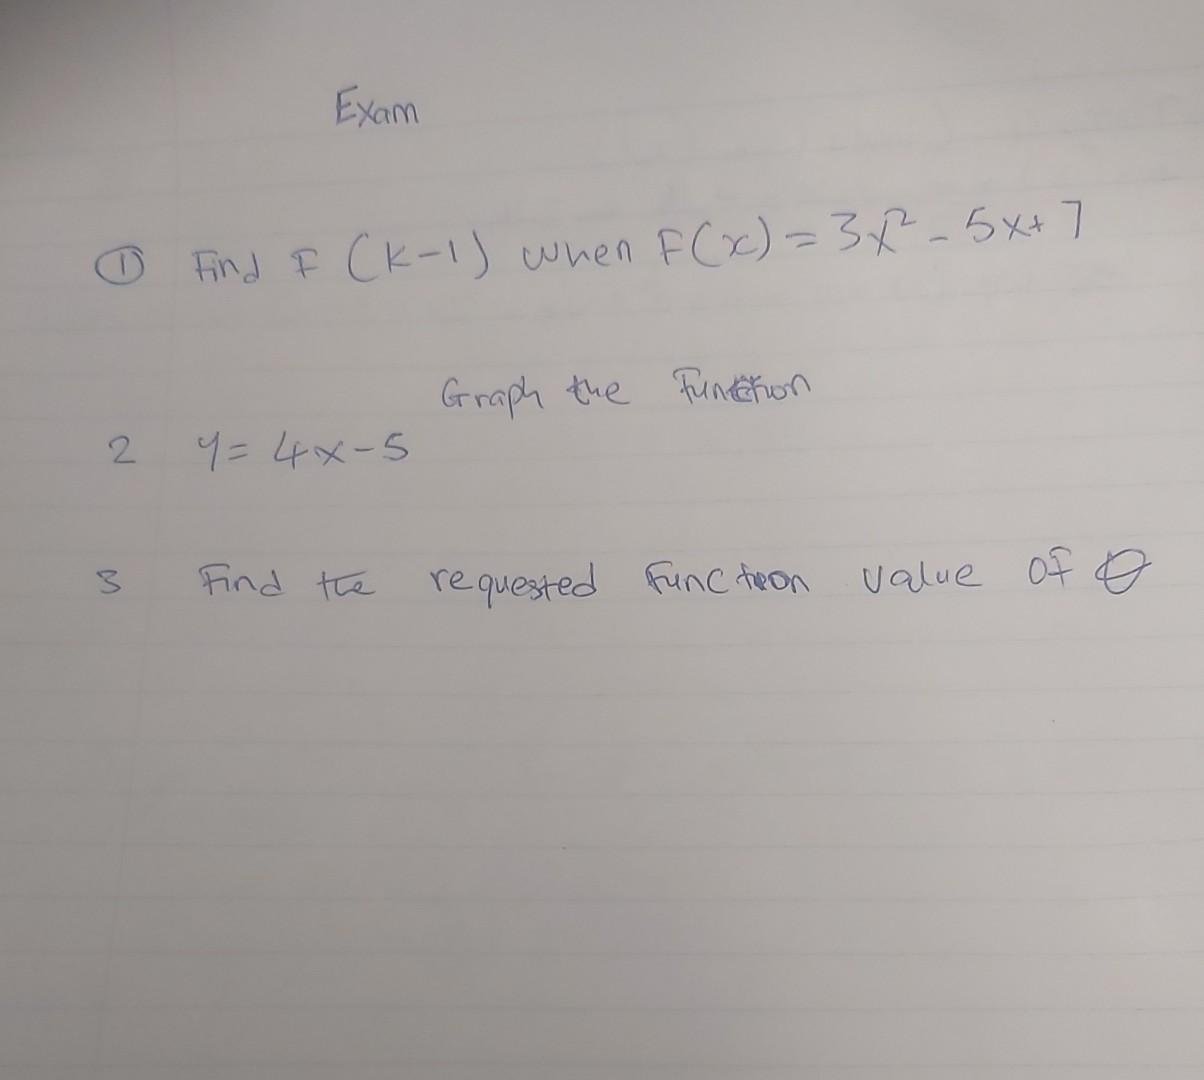 Exam
① Find F (k-1) when F(x) = 3x² - 5x + 7
Graph the Function
2 y = 4x - 5
3 Find the requested function value of θ